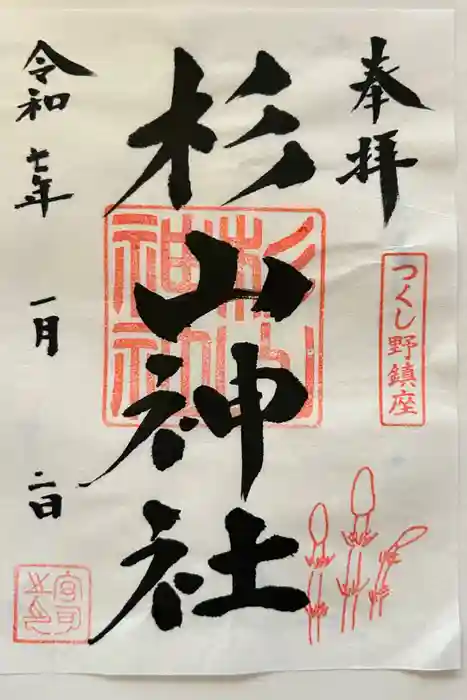 奉拝
つくし野鎮座
杉山神社
杉山神社
令和七年一月二日
宮司之印